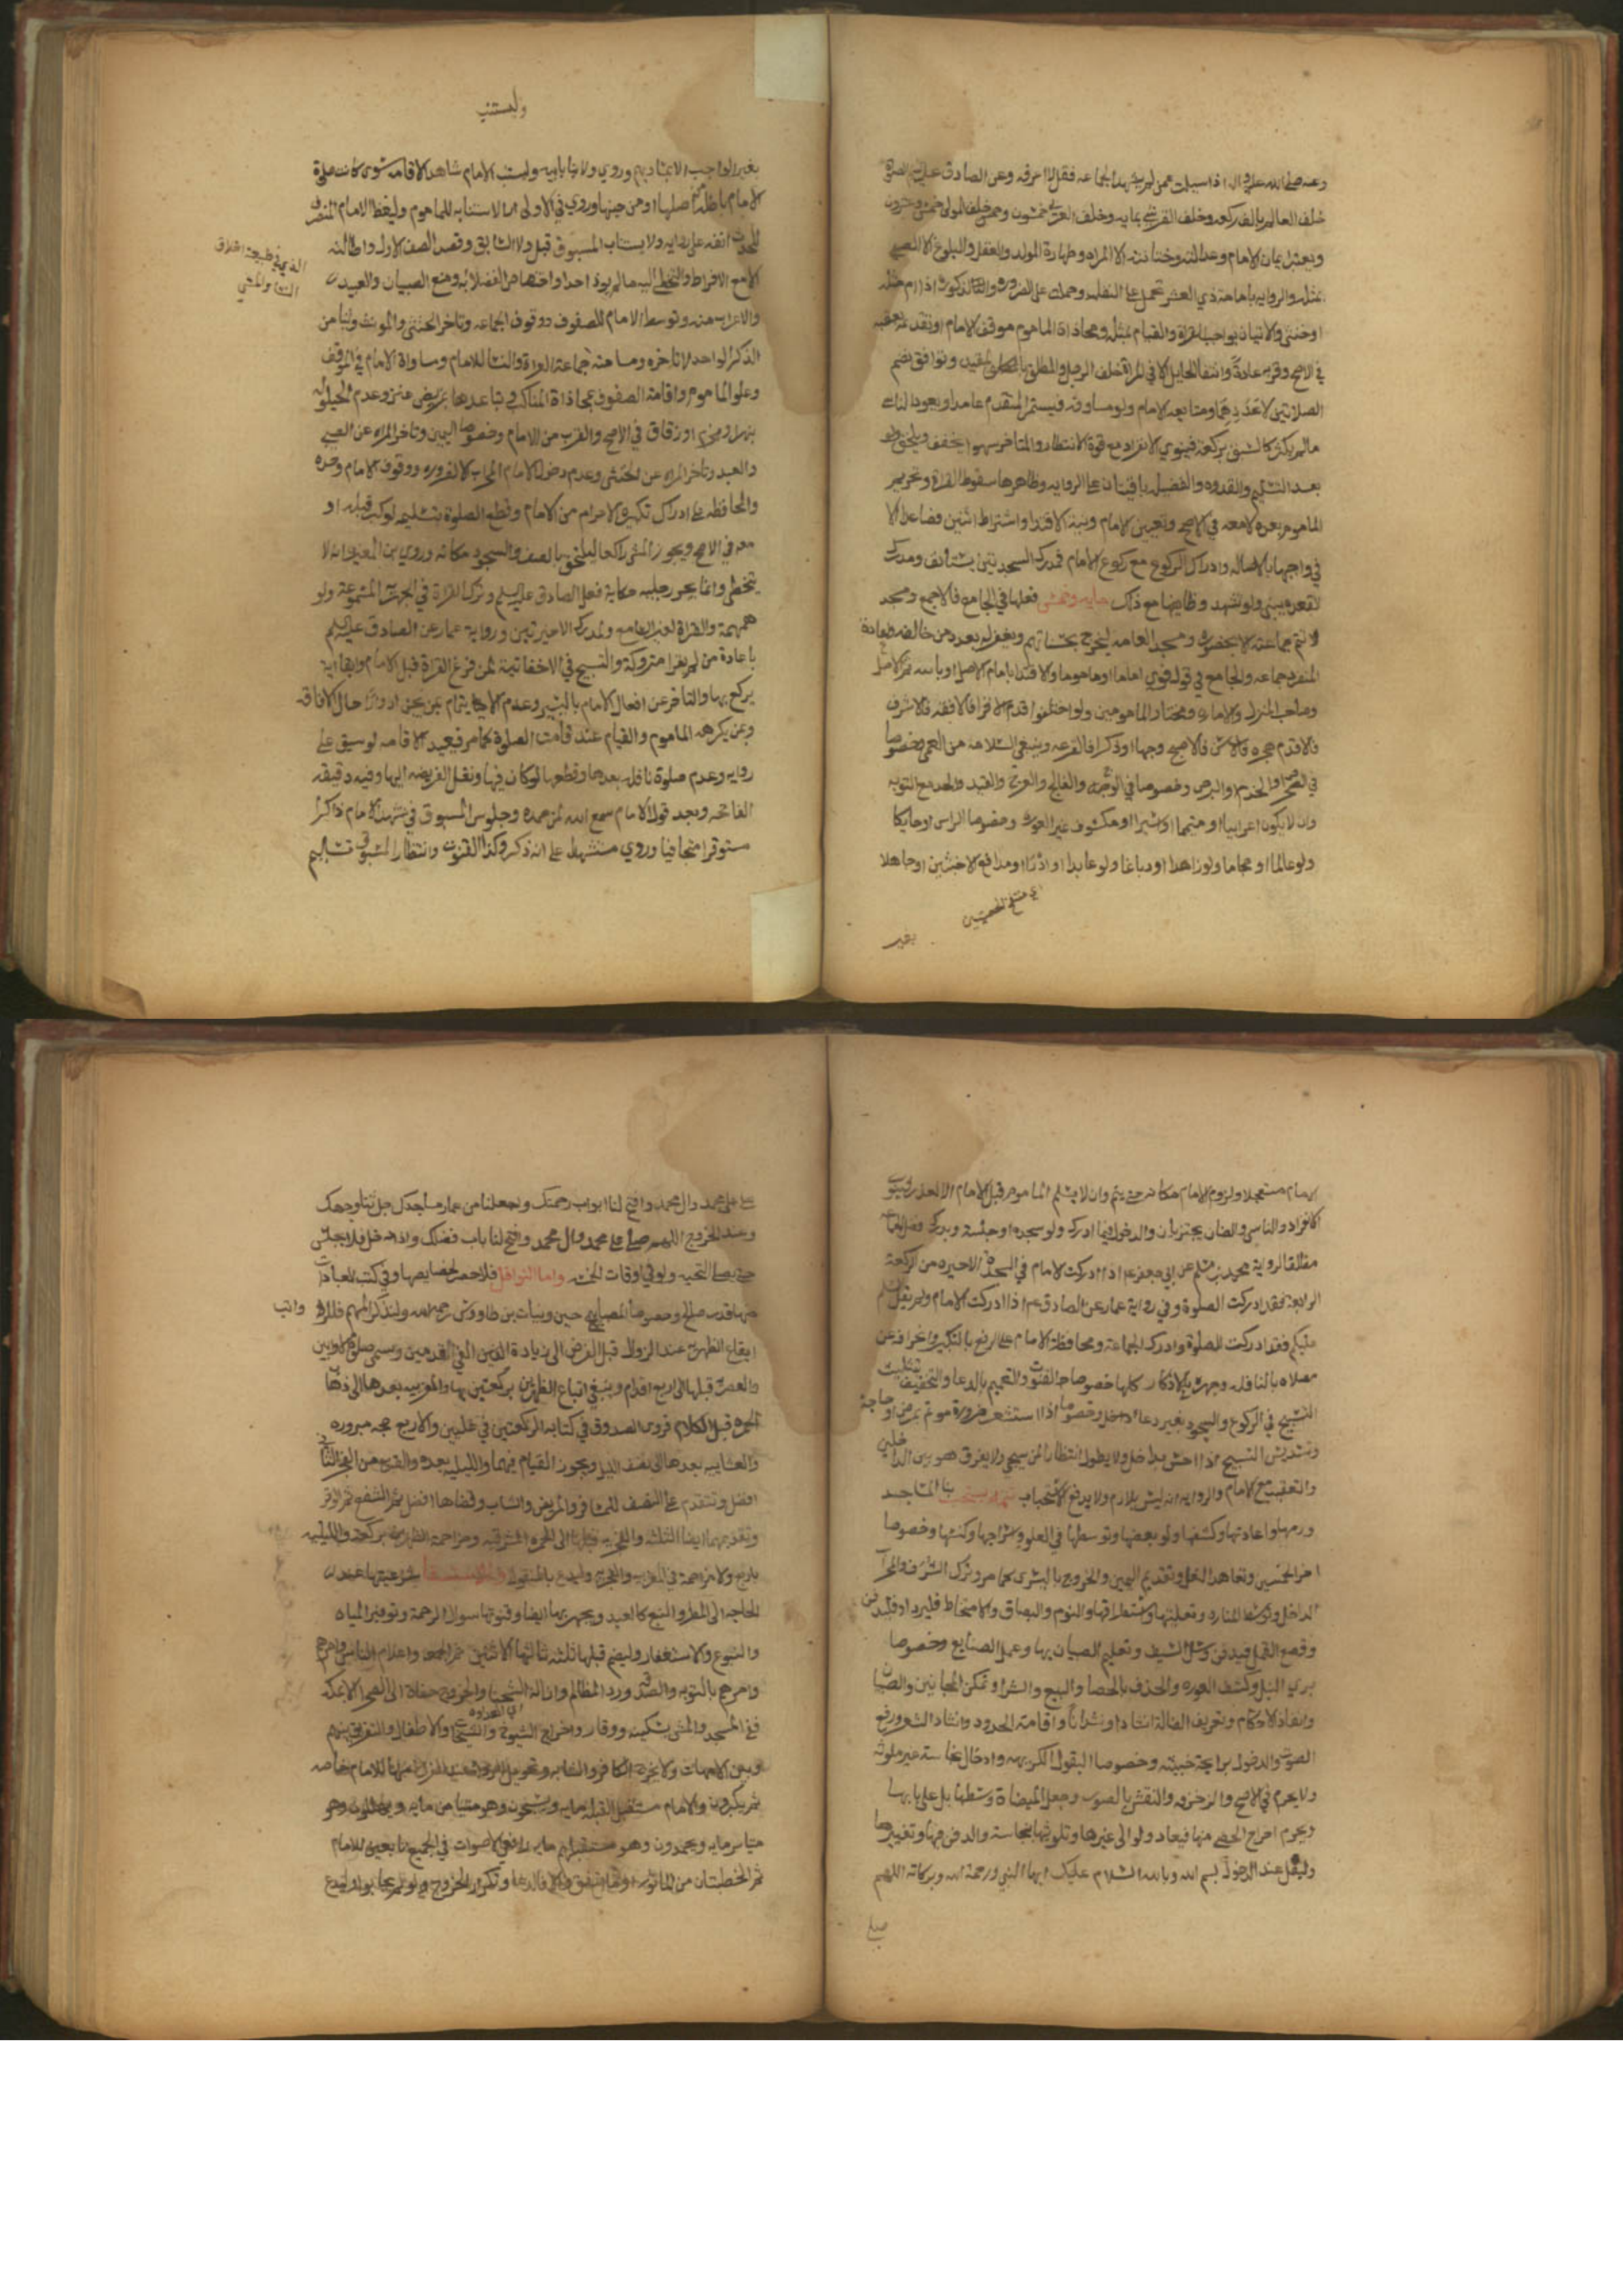 وعنه صلى الله عليه واله اذا سيلت عمن لم يشهد الجماعه فقل لا اعرفه وعن الصادق عليه السلم الصلوة
خلف العالم بالف ركعه وخلف القرشي بمايه وخلف العربي خمسون وخلف المولى خمس وعشرون
ويعتبر ايمان الامام وعدالته وختانته الا المراه وطهارة المولد والعقل والبلوغ الا الصبي
بمثله والروايه بامامة ذي العشر تحمل على النفل وحملت على الضروره والذكوره اذا ام مثله
او خنثى والاتيان بواجب القراة والقيام بمثله ومحاذاة الماموم موقف الامام او تقدمه بعقبه
في الاصح وقربه عادةً وانتفا الحايل الا في المراة خلف الرجل والمطلق بالمقيد وتوافق نضم
الصلاتين لا عددهما ومتابعه الامام ولو مساوقه فيستمر المتقدم عامدا ويعود الناسي
مالم يكثر كالسبق بركعة فينوي الانفراد مع قوة الانتظار والمتاخر سهوا يخفف ويلحق ولو
بعد التسليم والقدوه والفضيله باقيتان على الروايه وظاهرها سقوط القراة وتحريم
الماموم بعده لا معه في الاصح وتعيين الامام ونية الاقتدا واشتراط اثنين فصاعدا الا
في واجبها بالاصاله وادراك الركوع مع ركوع الامام فمدرك السجدتين يستانف ومدرك
القعده يبني ولو تشهد وظايفها مع ذلك مايه وخمس فعلها في الجامع فالاجمع ومسجد
لا تتم جماعته الا بحضوره ومسجد العامه ليخرج بحسناتهم ويغفر له بعدد من خالفه واعادة
المنفرد جماعه والجامع في قول قوي اماما او ماموما والاقتدا بامام الاصل او نايبه ثم الافضل
وصاحب المنزل والاماره ومختار المامومين ولو اختلفوا قدم الاقرا فالافقه فالاشرف
فالاقدم هجره فالاسن فالاصبح وجها او ذكرا فالقرعه وينبغي السلامه من العمى خصوصا
في الصحرا والجذام والبرص وخصوصا في الوجه والفالج والعرج والقيد والحد مع التوبه
وان لا يكون اعرابيا او متيمما او اسيرا او مكشوف غير العوره وخصوصا الراس او حايكا
ولو عالما او حجاما ولو زاهدا او دباغا ولو عابدا او ادرا او مدافع الاخبثين او جاهلا
اي منتفخ الخصيتين
بغير
وليستنب
بغير الواجب الا بمساويهم وروي ولا بابيه وليستنب الامام شاهد الاقامه سوى كانت صلوة
الامام باطله من اصلها او من حينها وروي في الاولى لا استنابه للماموم وليغط الامام المنصرف
للحدث انفه على ردايه ولا يستناب المسبوق قبل ولا السابق وقصد الصف الاول واطالته
الا مع الافراط والتخطي اليه مالم يوذ احدا واختصاص الفضلا به ومنع الصبيان والعبيد
والاعراب منه وتوسط الامام للصفوف ووقوف الجماعه وتاخر الخنثى والمونث ولتيامن
الذكر الواحد لا تاخره ومسامته جماعة العراة والنسا للامام ومساواة الامام في الموقف
وعلو الماموم واقامة الصفوف بمحاذاة المناكب وتباعدها بمربض عنز وعدم الحيلوله
بنهر او مخرم او زقاق في الاصح والقرب من الامام وخصوصا اليمين وتاخر المراه عن الصبي
والعبد وتاخر المراه عن الخنثى وعدم دخول الامام المحراب الا لضروره ووقوف الامام وحده
والمحافظه على ادراك تكبيرة الاحرام من الامام وقطع الصلوة بتسليمه لو كبر قبله او
معه في الاصح ويجوز المشي راكعا ليلتحق بالصف والسجود مكانه وروي بن المغيره انه لا
يتخطى وانما يجر رجليه حكاية فعل الصادق عليه السلم وترك القراة في الجهريه المسموعة ولو
همهمة والقراة لغير السامع ولمدرك الاخيرتين ورواية عمار عن الصادق عليه السلم
باعادة من لم يقرا متروكة والتسبيح في الاخفاتية لمن فرغ القراة قبل الامام وابقا اية
يركع بها والتاخر عن افعال الامام باليسير وعدم الايتمام بمن يجن ادوارا حال الافاقه
وبمن يكرهه الماموم والقيام عند قد قامت الصلوة كما مر فيعيد الاقامه لو سبق على
روايه وعدم صلوة نافله بعدها وقطعها لو كان فيها ونقل الفريضه اليها وفيه دقيقه
الفاتحه وبعد قول الامام سمع الله لمن حمده وجلوس المسبوق في تشهد الامام ذاكرا
مستوفزا متجافيا وروي متشهدا على انه ذكر وكذا القنوت وانتظار المسبوق تسليم
الامام مستعجلا ولزوم الامام مكانه حتى يتم وان لا يسلم الماموم قبل الامام الا لعذر
الانفراد والناسي والضان يجتزيان والدخول فيما ادرك ولو سجده او جلسة ويدرك فضل الجماعه
مطلقا لرواية محمد بن مسلم عن ابي جعفر ع اذا ادركت الامام في السجدة الاخيره من الركعة
الرابعة فقد ادركت الصلوة وفي رواية عمار عن الصادق ع اذا ادركت الامام ولم يقل السلم
عليكم فقد ادركت الصلوة وادرك الجماعة ومحافظة الامام على الرفع بالتكبير وانحرافه عن
مصلاه بالنافله وجهره بالاذكار كلها خصوصا القنوت والتعميم بالدعا والتخفيف بتثليث
التسبيح في الركوع والسجود بغير دعا وخصوصا اذا استشعر ضرورة موتم بمرض او حاجة
وتسديس التسبيح اذا احس بداخل ولا يطول انتظارا لمن سيجي ولا يفرق بين الداخلين
والتعقيب مع الامام والروايه انه ليس بلازم ولا يدفع الاستحباب تتمه يستحب بنا المساجد
ورمها واعادتها وكشفها ولو بعضها وتوسطها في العلو واسراجها وكنسها وخصوصا
اخر الخميس وتعاهد النعل وتقديم اليمين والخروج باليسرى كما مر وترك الشرف والمحراب
الداخل وتوسط المناره وتعليتها واستطراقها والنوم والبصاق والامتخاط فليرد او فليدفن
وقصع القمل فيدفن وسل السيف وتعليم الصبيان بها وعمل الصنايع وخصوصا
بري النبل وكشف العوره والحذف بالحصا والبيع والشرا وتمكن المجانين والصبيان
وانفاذ الاحكام وتعريف الضالة انشادا ونشدانا واقامة الحدود وانشاد الشعر ورفع
الصوت والدخول برايحة خبيثه وخصوصا البقول الكريهه وادخال نجاسة غير ملوثه
ولا يحرم في الاصح والزخرفه والنقش بالصور وجعل الميضاة وسطها بل على بابها
ويحرم اخراج الحصى منها فيعاد ولو الى غيرها وتلويثها بنجاسة والدفن فيها وتغييرها
وليقل عند الدخول بسم الله وبالله السلام عليك ايها النبي ورحمة الله وبركاته اللهم
صل
صل على محمد وال محمد وافتح لنا ابواب رحمتك واجعلنا من عمار مساجدك جل ثنا وجهك
وعند الخروج اللهم صل على محمد وال محمد وافتح لنا باب فضلك واذا دخل فلا يجلس
حتى يصلي التحيه ولو في اوقات الخمسه واما النوافل فلا حصر لخصايصها وفي كتب العبادات
منها قدر صالح وخصوصا المصابيح وتتمات بن طاووس رحمه الله ولنذكر المهم فللرواتب
ايقاع الظهريه عند الزوال قبل الفرض الى زيادة الفي القدمين وتسمى صلوة الاوابين
والعصريه قبلها الى اربع اقدام وينبغي اتباع الظهرين بركعتين بها والمغربيه بعدها الى ذهاب
الحمره قبل الكلام فروى الصدوق في كتابه الركعتين في عليين والاربع حجه مبروره
والعشاييه بعدها الى نصف الليل ويجوز القيام فيهما والليليه بعده والقرب من الفجر الثاني
افضل وتتقدم على النصف للمسافر والمريض والشاب وقضاها افضل ثم الشفع ثم الوتر
للحاجه الى المطر والنبع كالعيد ويجهر بها ايضا وقنوتها سوال الرحمة وتوفير المياه
والنبوع والاستغفار وليصم قبلها ثلثه ثالثها الاثنين ثم الجمعه واعلام الناس
وامرهم بالتوبه والصدقه ورد المظالم وازالة الشحنا والخروج حفاة الى الصحرا الا بمكه
ففي المسجد والمشي بسكينه ووقار واخراج الشيوخ والشيخات والاطفال والتفريق بينهم
وبين الامهات
ثم يكبرون والامام مستقبل القبله مايه ويسبحون وهو متيامن مايه ويهللون وهو
متياسر مايه ويحمدون وهو مستقبلهم مايه رافعي الاصوات في الجميع تابعين للامام
ثم الخطبتان من الماثور